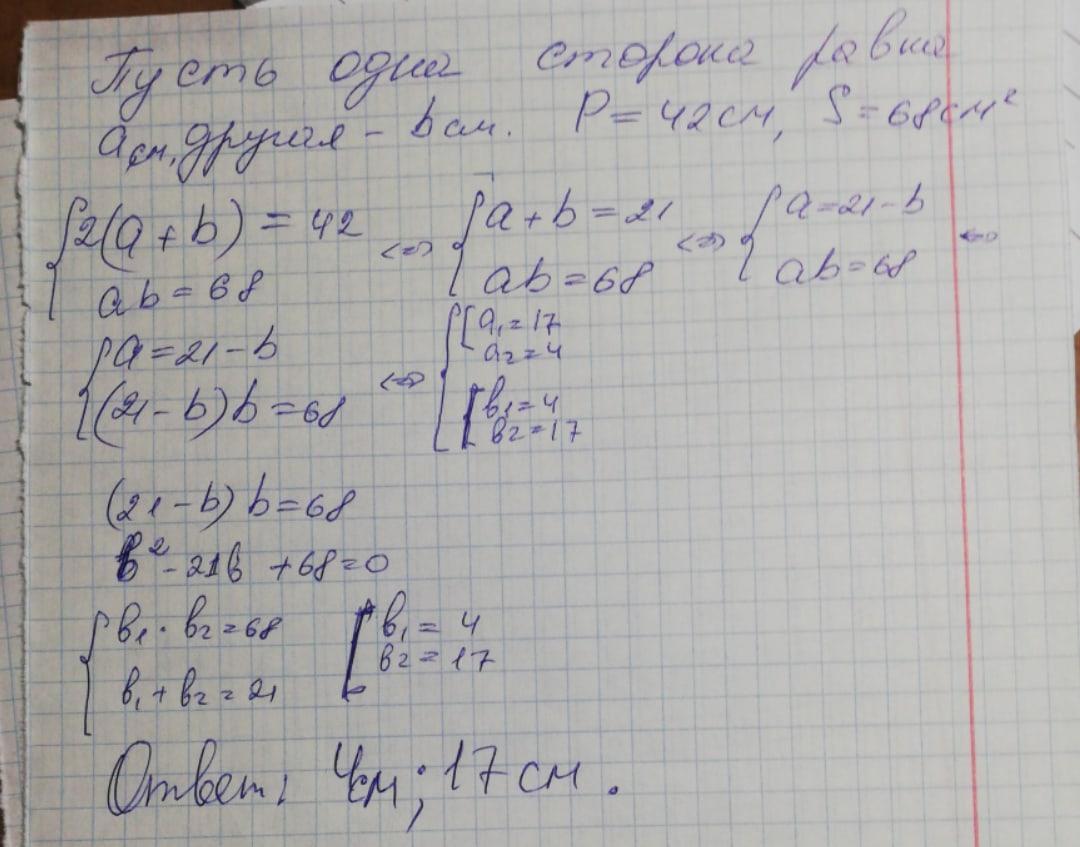 Пусть одна сторона равна
a см, другая – b см. P = 42 см, S = 68 см²
{2(a + b) = 42 <=> {a + b = 21 <=> {a = 21 - b <=>
ab = 68 ab = 68 ab = 68
{a = 21 - b <=> {[a₁ = 17
a₂ = 4
(21 - b) b = 68 [b₁ = 4
b₂ = 17
(21 - b) b = 68
b² - 21b + 68 = 0
{b₁ · b₂ = 68 [b₁ = 4
b₂ = 17
b₁ + b₂ = 21
Ответ: 4 см; 17 см.